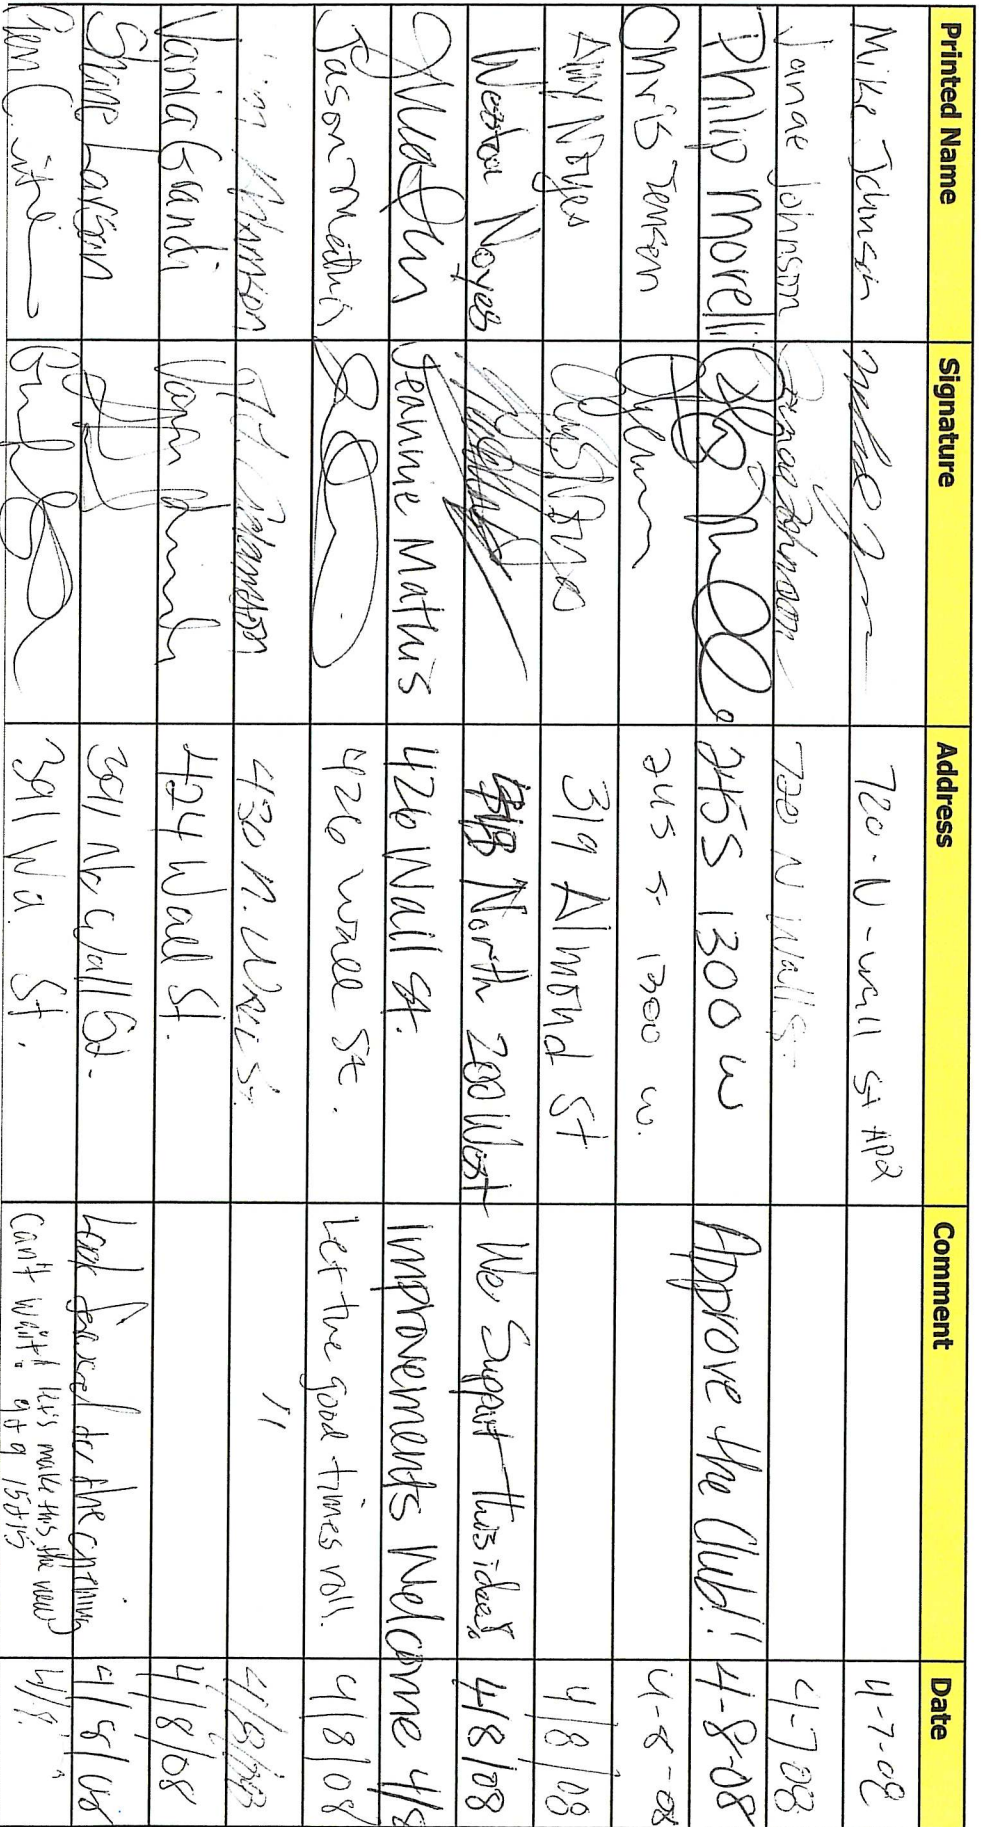 Printed Name Signature Address Comment Date
Mike Johnson 720 - N - wall St AP2 4-7-08
Janae Johnson Janae Johnson 720 N Wall St. 4-7-08
Philip Morelli 245 S 1300 W Approve the Club!! 4-8-08
Chris Jensen 245 S 1300 W. 4-8-08
Amy Noyes Amy Noyes 319 Almond St 4/8/08
Weston Noyes North 200 West We Support this idea 4/8/08
Jeannie Mathis 426 Wall St. Improvements Welcome 4/8
Jason Mathis 426 Wall St. Let the good times roll. 4/8/08
430 N. Wall St. " 4/8/08
Vania Grandi 424 Wall St. 4/8/08
Shane Larson 391 No Wall St. Look forward to the opening 4/8/08
391 Wall St. Can't wait! let's make this the new